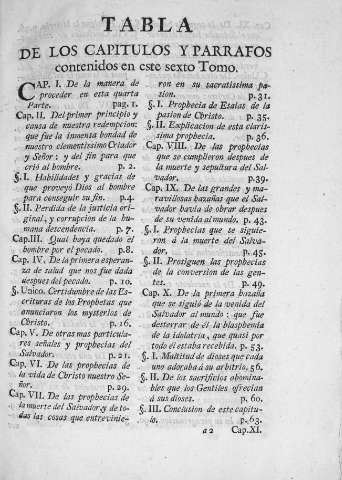 TABLA
DE LOS CAPITULOS Y PARRAFOS
contenidos en este sexto Tomo.
CAP. I. De la manera de
proceder en esta quarta
Parte. pag. 1.
Cap. II. Del primer principio y
causa de nuestra redempcion:
que fue la inmensa bondad de
nuestro clementissimo Criador
y Señor: y del fin para que
crió al hombre. p. 2.
§. I. Habilidades y gracias de
que proveyó Dios al hombre
para conseguir su fin. p. 4.
§. II. Perdida de la justicia ori-
ginal, y corrupcion de la hu-
mana descendencia. p. 7.
Cap. III. Qual haya quedado el
hombre por el pecado. p. 8.
Cap. IV. De la primera esperan-
za de salud que nos fue dada
despues del pecado. p. 10.
§. Unico. Certidumbre de las Es-
crituras de los Prophetas que
anunciaron los mysterios de
Christo. p. 16.
Cap. V. De otras mas particula-
res señales y prophecias del
Salvador. p. 21.
Cap. VI. De las prophecias de
la vida de Christo nuestro Se-
ñor. p. 29.
Cap. VII. De las prophecias de
la muerte del Salvador, y de to-
das las cosas que entrevinie-
ron en su sacratissima pa-
sion. p. 31.
§. I. Prophecia de Esaias de la
pasion de Christo. p. 35.
§. II. Explicacion de esta claris-
sima prophecia. p. 36.
Cap. VIII. De las prophecias
que se cumplieron despues de
la muerte y sepultura del Sal-
vador. p. 39.
Cap. IX. De las grandes y ma-
ravillosas hazañas que el Sal-
vador havia de obrar despues
de su venida al mundo. p. 43.
§. I. Prophecias que se siguie-
ron á la muerte del Salva-
dor. p. 45.
§. II. Prosiguen las prophecias
de la conversion de las gen-
tes. p. 49.
Cap. X. De la primera hazaña
que se siguió de la venida del
Salvador al mundo: que fue
desterrar de él la blasphemia
de la idolatria, que quasi por
todo él estaba recebida. p. 53.
§. I. Multitud de dioses que cada
uno adoraba á su arbitrio. 56.
§. II. De los sacrificios abomina-
bles que los Gentiles ofrecian
á sus dioses. p. 60.
§. III. Conclusion de este capitu-
lo. p. 63.
a 2 Cap. XI.